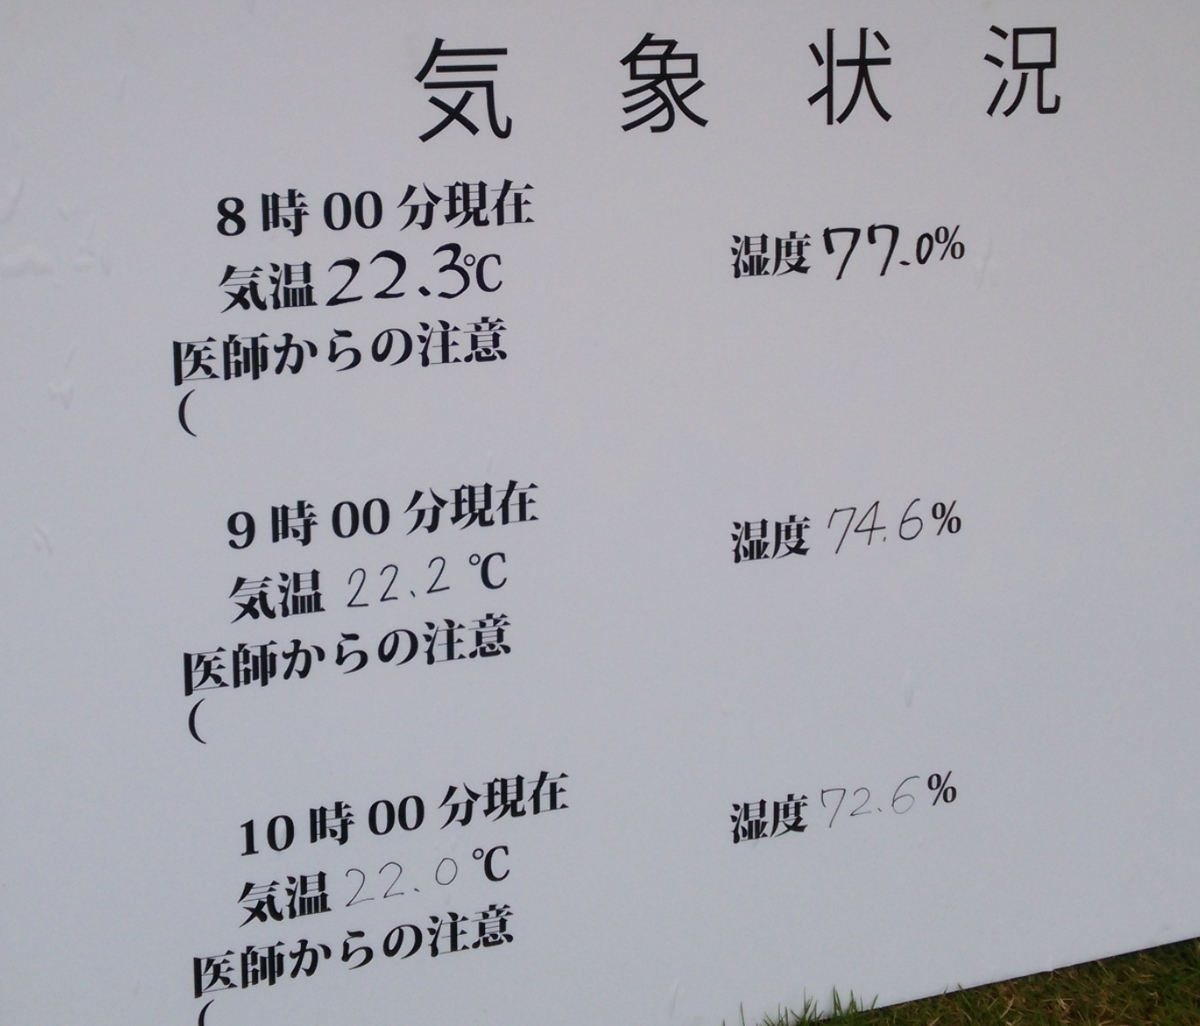 気象状況
8時00分現在
気温22.3℃ 湿度77.0%
医師からの注意
(
9時00分現在
気温 22.2 ℃ 湿度 74.6%
医師からの注意
(
10時00分現在
気温 22.0 ℃ 湿度 72.6 %
医師からの注意
(